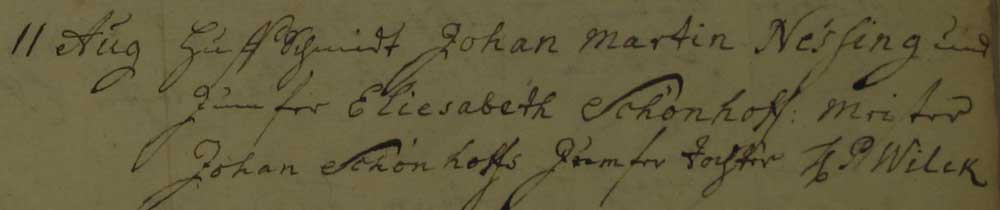 11 Aug Huffschmidt Johan Martin Nessing und
Jumfer Eliesabeth Schönhoff: Meister
Johan Schönhoffs Jumfer tochter P Wilck